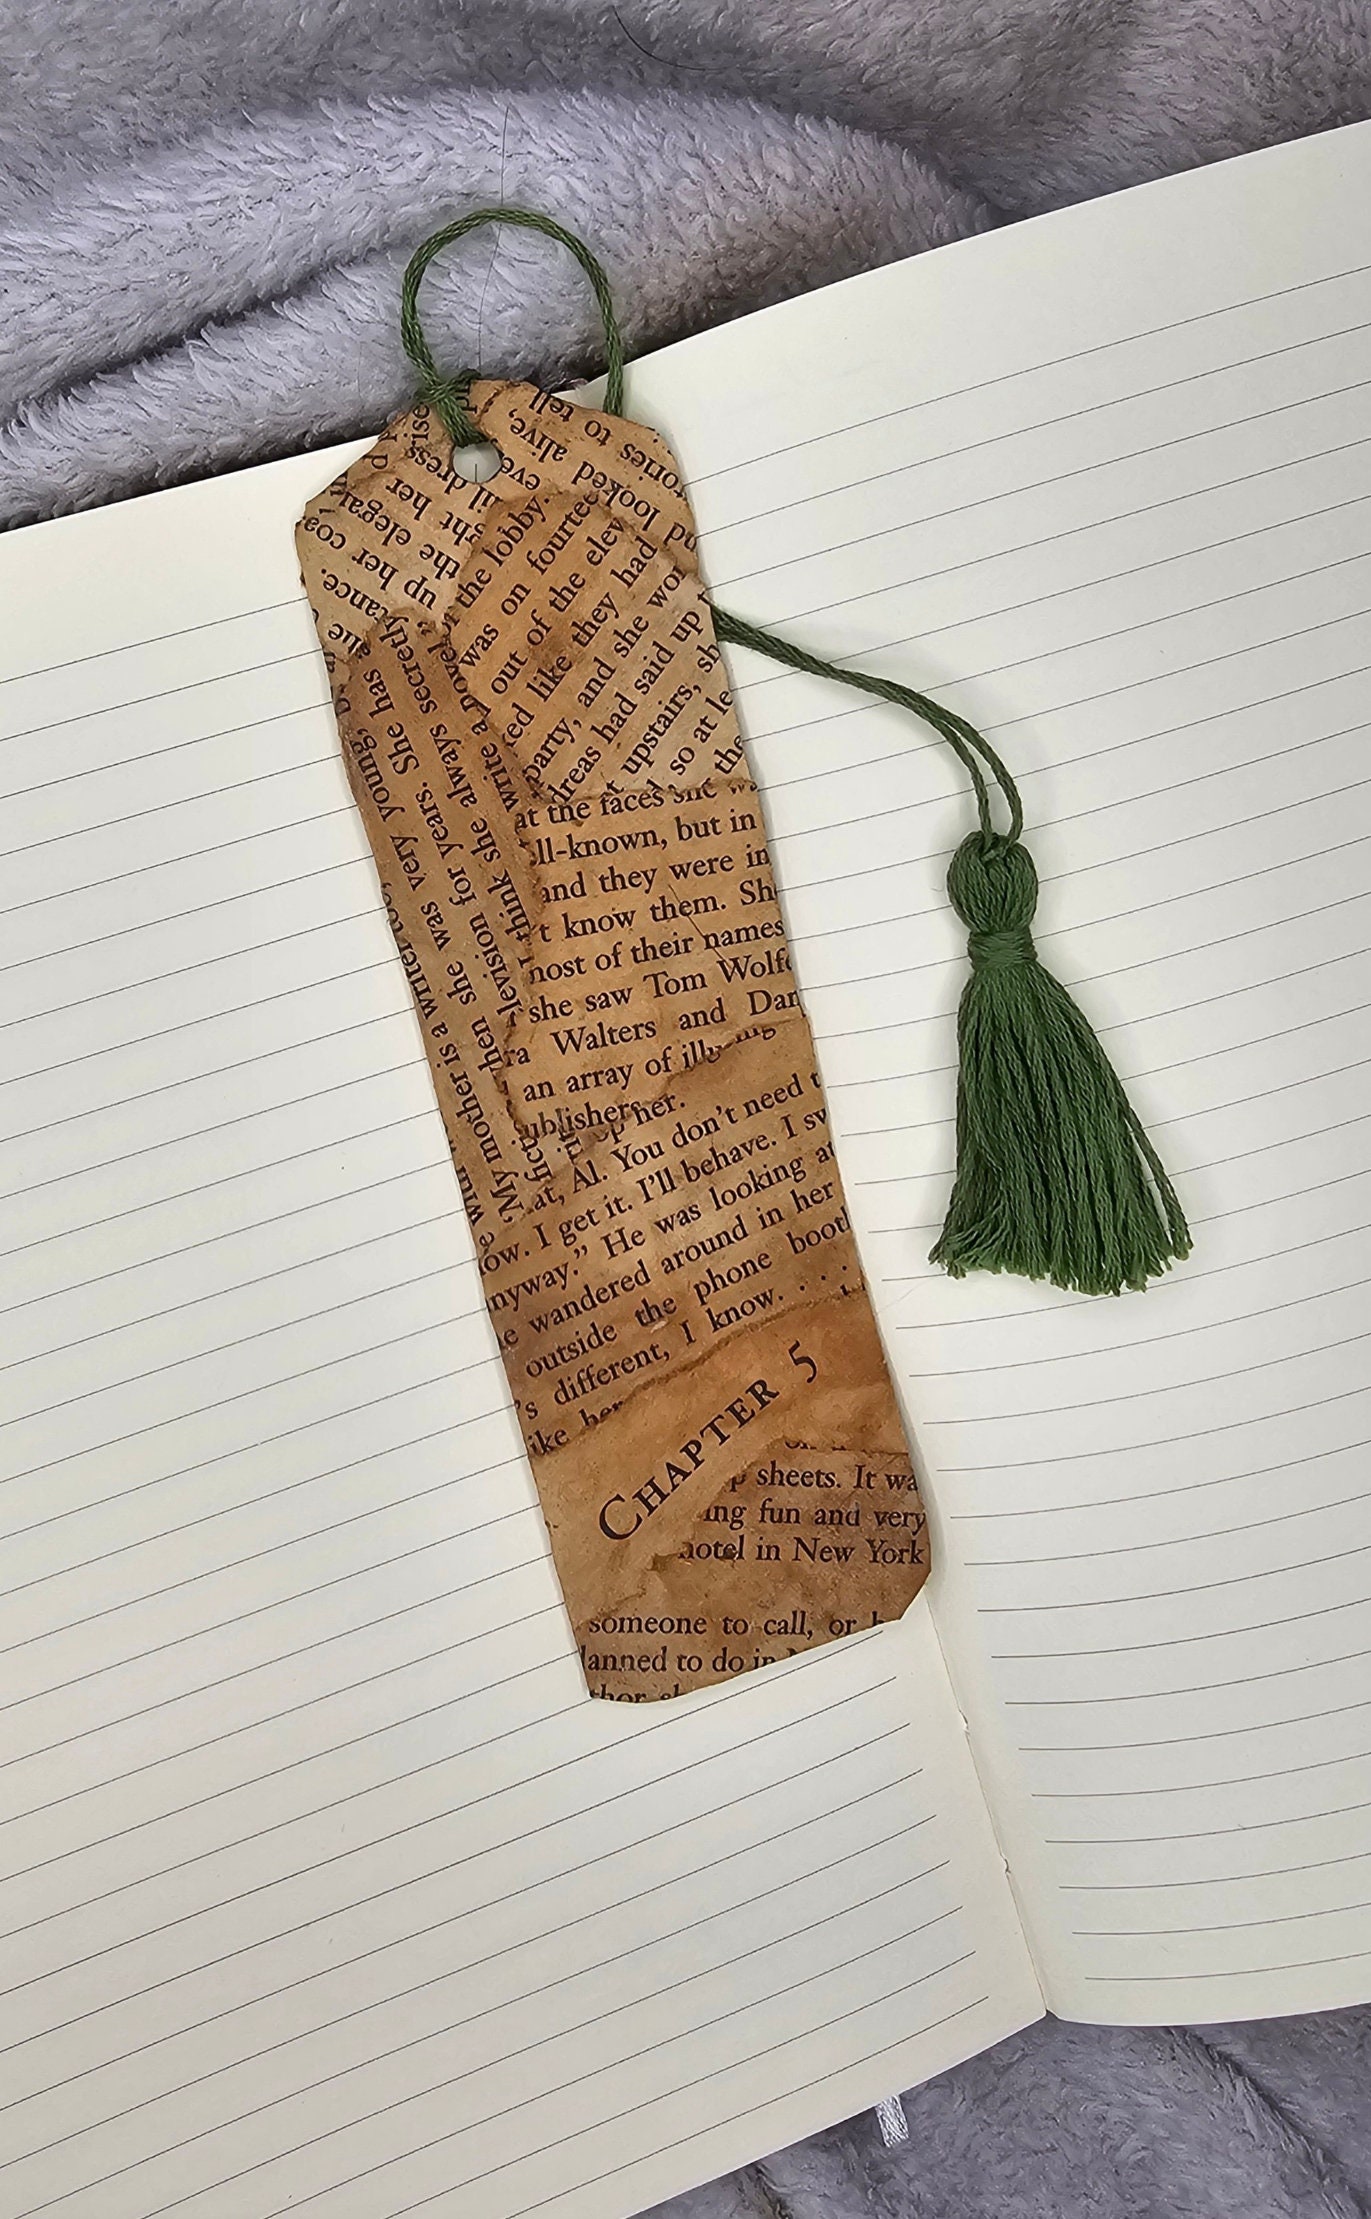 to tell
alive,
looked
dress
her
the elegan
up her coa
tance.
the lobby.
was on fourtee
out of the elev
like they had
party, and she wor
dreas had said up
upstairs, sh
so at le
the
young,
She has
was very
she always secretly
for years.
write a novel
think she
levision
when she
is a writer
"My mother
at the faces she
ll-known, but in
and they were in
't know them. Sh
most of their names
she saw Tom Wolfe
ra Walters and Dan
an array of
ublishers
her.
at, Al. You don't need t
ow. I get it. I'll behave. I sw
nyway." He was looking at
e wandered around in her
outside the phone booth
's different, I know. . . .
ike her
CHAPTER 5
sheets. It wa
ing fun and very
hotel in New York
someone to call, or
lanned to do in
thor